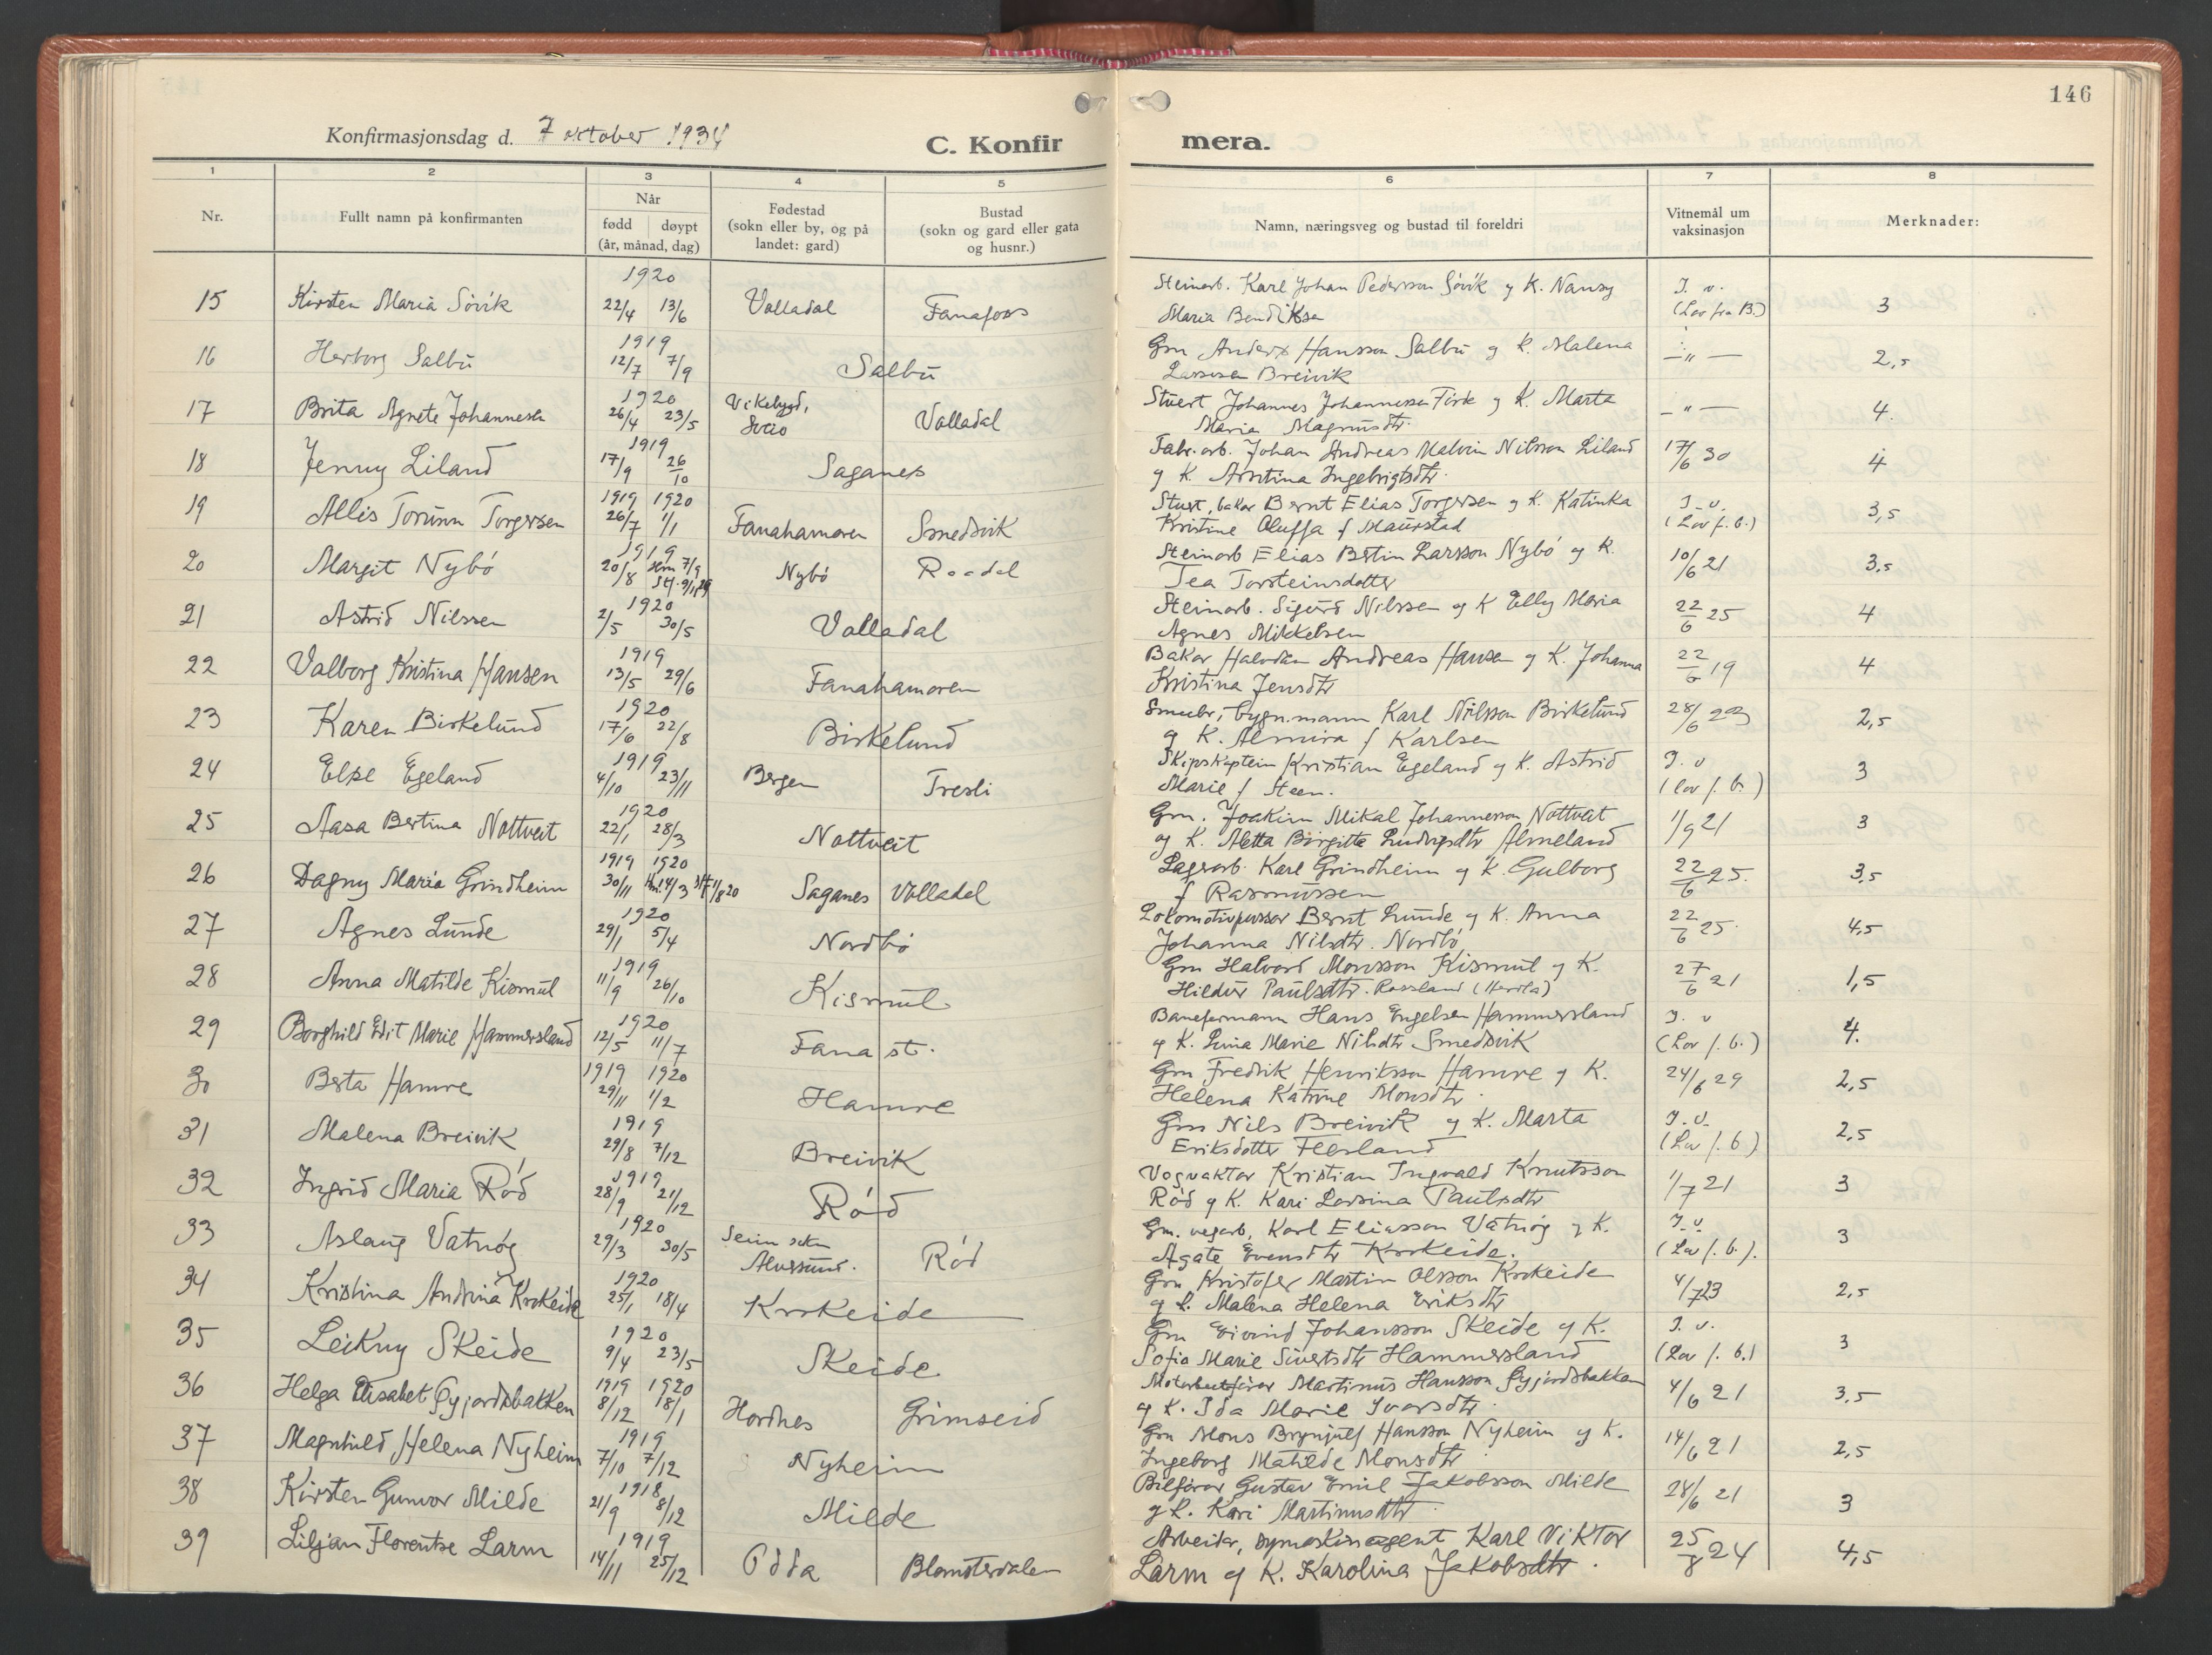 146
Konfirmasjonsdag d. 7 oktober 1934
C. Konfir mera.
1 2 3 4 5 6 7 8
Nr. Fullt namn på konfirmanten Når fødd døypt (år, månad, dag) Fødestad (sokn eller by, og på landet: gard) Bustad (sokn og gard eller gata og husnr.) Namn, næringsveg og bustad til foreldri Vitnemål um vaksinasjon Merknader:
1920
15 Kirsten Maria Søvik 22/4 13/6 Valladal Fanafoss Steinarb. Karl Johan Pedersson Søvik og K. Nansy J. v.
Maria Bendiksen (Lov fra B.) 3
1919
16 Herborg Salbu 12/7 7/9 Salbu Grn Anders Hansson Salbu og K. Malena —"—
Larsson Breivik 2,5
1920
17 Brita Agnete Johannesen 26/4 23/5 Vikebygd, Valladal Stuert Johannes Johannessen Fisk og K. Marta —"— 4.
Maria Magnusdtr.
1919
18 Jenny Liland 17/9 26/10 Saganes Fabr.arb. Johan Andreas Malvin Nilsson Liland 17/6 30 4
og K. Arntina Ingebrigtsdtr.
1919 1920
19 Allis Torunn Torgersen 26/7 1/1 Fanahamaren Smedvik Stuert, bakar Bernt Elias Torgersen og K. Katinka J. v.
Kristine Oluffa f Maurstad (Lov f. b.) 3,5
1919
20 Margit Nybø 20/8 Hm 7/9 Nybø Roadal Steinarb Elias Bertin Larsson Nybø og K. 10/6 21 3,5
Tea Torsteinsdotter
1920
21 Astrid Nilssen 2/5 30/5 Valladal Steinarb. Sigurd Nilssen og K Elly Maria 22/6 25 4
Agnes Mikkelsen
1919
22 Valborg Kristina Hansen 13/5 29/6 Fanahamaren Bakar Halvdan Andreas Hansen og K. Johanna 22/6 19 4
Kristina Jensdtr
1920
23 Karen Birkelund 17/6 22/8 Birkelund bygn.mann Karl Nilsson Birkelund 28/6 2,5
og K. Almira f Karlsen
1919
24 Else Egeland 4/10 23/11 Bergen Tresli Skipskaptein Kristian Egeland og K. Astrid J. v
Marie f Steen. (Lov f. b.) 3
1920
25 Aasa Bertina Nottveit 22/1 28/3 Nottveit Grn. Joakim Mikal Johannesson Nottveit 1/9 21 3
og K. Aletta Birgitte Ludvigsdtr Almeland
1919 1920
26 Dagny Maria Grindheim 30/11 Hm. 14/3 Stf 1/8 20 Saganes Valladal Lagerarb. Karl Grindheim og K. Gulborg 22/6 25. 3,5
f Rasmussen
1920
27 Agnes Lunde 29/1 5/4 Nordbø Lokomotivpusser Bernt Lunde og K. Anna 22/6 25. 4,5
Johanna Nilsdtr. Nordbø
1919
28 Anna Matilde Kismul 11/9 26/10 Kismul Grn Halvard Monsson Kismul og K. 27/6 21 1,5
Hildur Paulsdtr. Rossland (Herdla)
1920
29 Borghild Edit Marie Hammersland 12/5 11/7 Fana st. Baneformann Hans Engelsen Hammersland J. v
og K. Lina Marie Nilsdtr Smedvik (Lov f. b.) 4.
1919 1920
30 Berta Hamre 29/11 1/2 Hamre Grn Fredrik Henriksson Hamre og K. 24/6 29 2,5
Helena Katrine Monsdtr.
1919
31 Malena Breivik 29/8 7/12 Breivik Grn Nils Breivik og K. Marta J. v.
Eriksdotter Flesland (Lov f. b.) 2,5
1919
32 Ingrid Maria Rød 28/9 21/12 Rød Vogvaktar Kristian Ingvald Knutsson 1/7 21 3
Rød og K. Kari Larsina Paulsdtr
1920
33 Aslaug Vatnøy 29/3 30/5 Seim sokn Alversund. Rød Grn. vegarb. Karl Eliasson Vatnøy og K. J. v.
Agate Evensdtr Krokeide. (Lov f. b.). 3
1920
34 Kristina Andrina Krokeide 25/1 18/4 Krokeide Grn Kristofer Martin Olsson Krokeide 4/7 23 2,5
og K. Malena Helena Eriksdtr
1920
35 Leikny Skeide 9/4 23/5 Skeide Grn Eivind Johansson Skeide og K. J. v.
Sofia Marie Sivertsdtr Hammersland (Lov f. b.) 3
1919 1920
36 Helga Elisabet Gyjordsbakken 8/12 18/1 Hordnes Grimseid Motorbåtførar Martinus Hansson Gyjordsbakken 4/6 21 3,5
og K. Ida Marie Ivarsdtr.
1919
37 Magnhild Helena Nyheim 7/10 7/12 Nyheim Grn Mons Brynjulf Hansson Nyheim og K. 14/6 21 2,5
Ingeborg Matilde Monsdtr
1918
38 Kirsten Gunvor Milde 21/9 8/12 Milde Bilførar Gustav Emil Jakobsson Milde 28/6 21 3
og K. Kari Martinusdtr.
1919
39 Liljan Florentse Larm 14/11 25/12 Odda Blomsterdalen Arbeidar, symaskinagent Karl Viktor 25/8 24 4,5
Larm og K. Karolina Jakobsdtr.